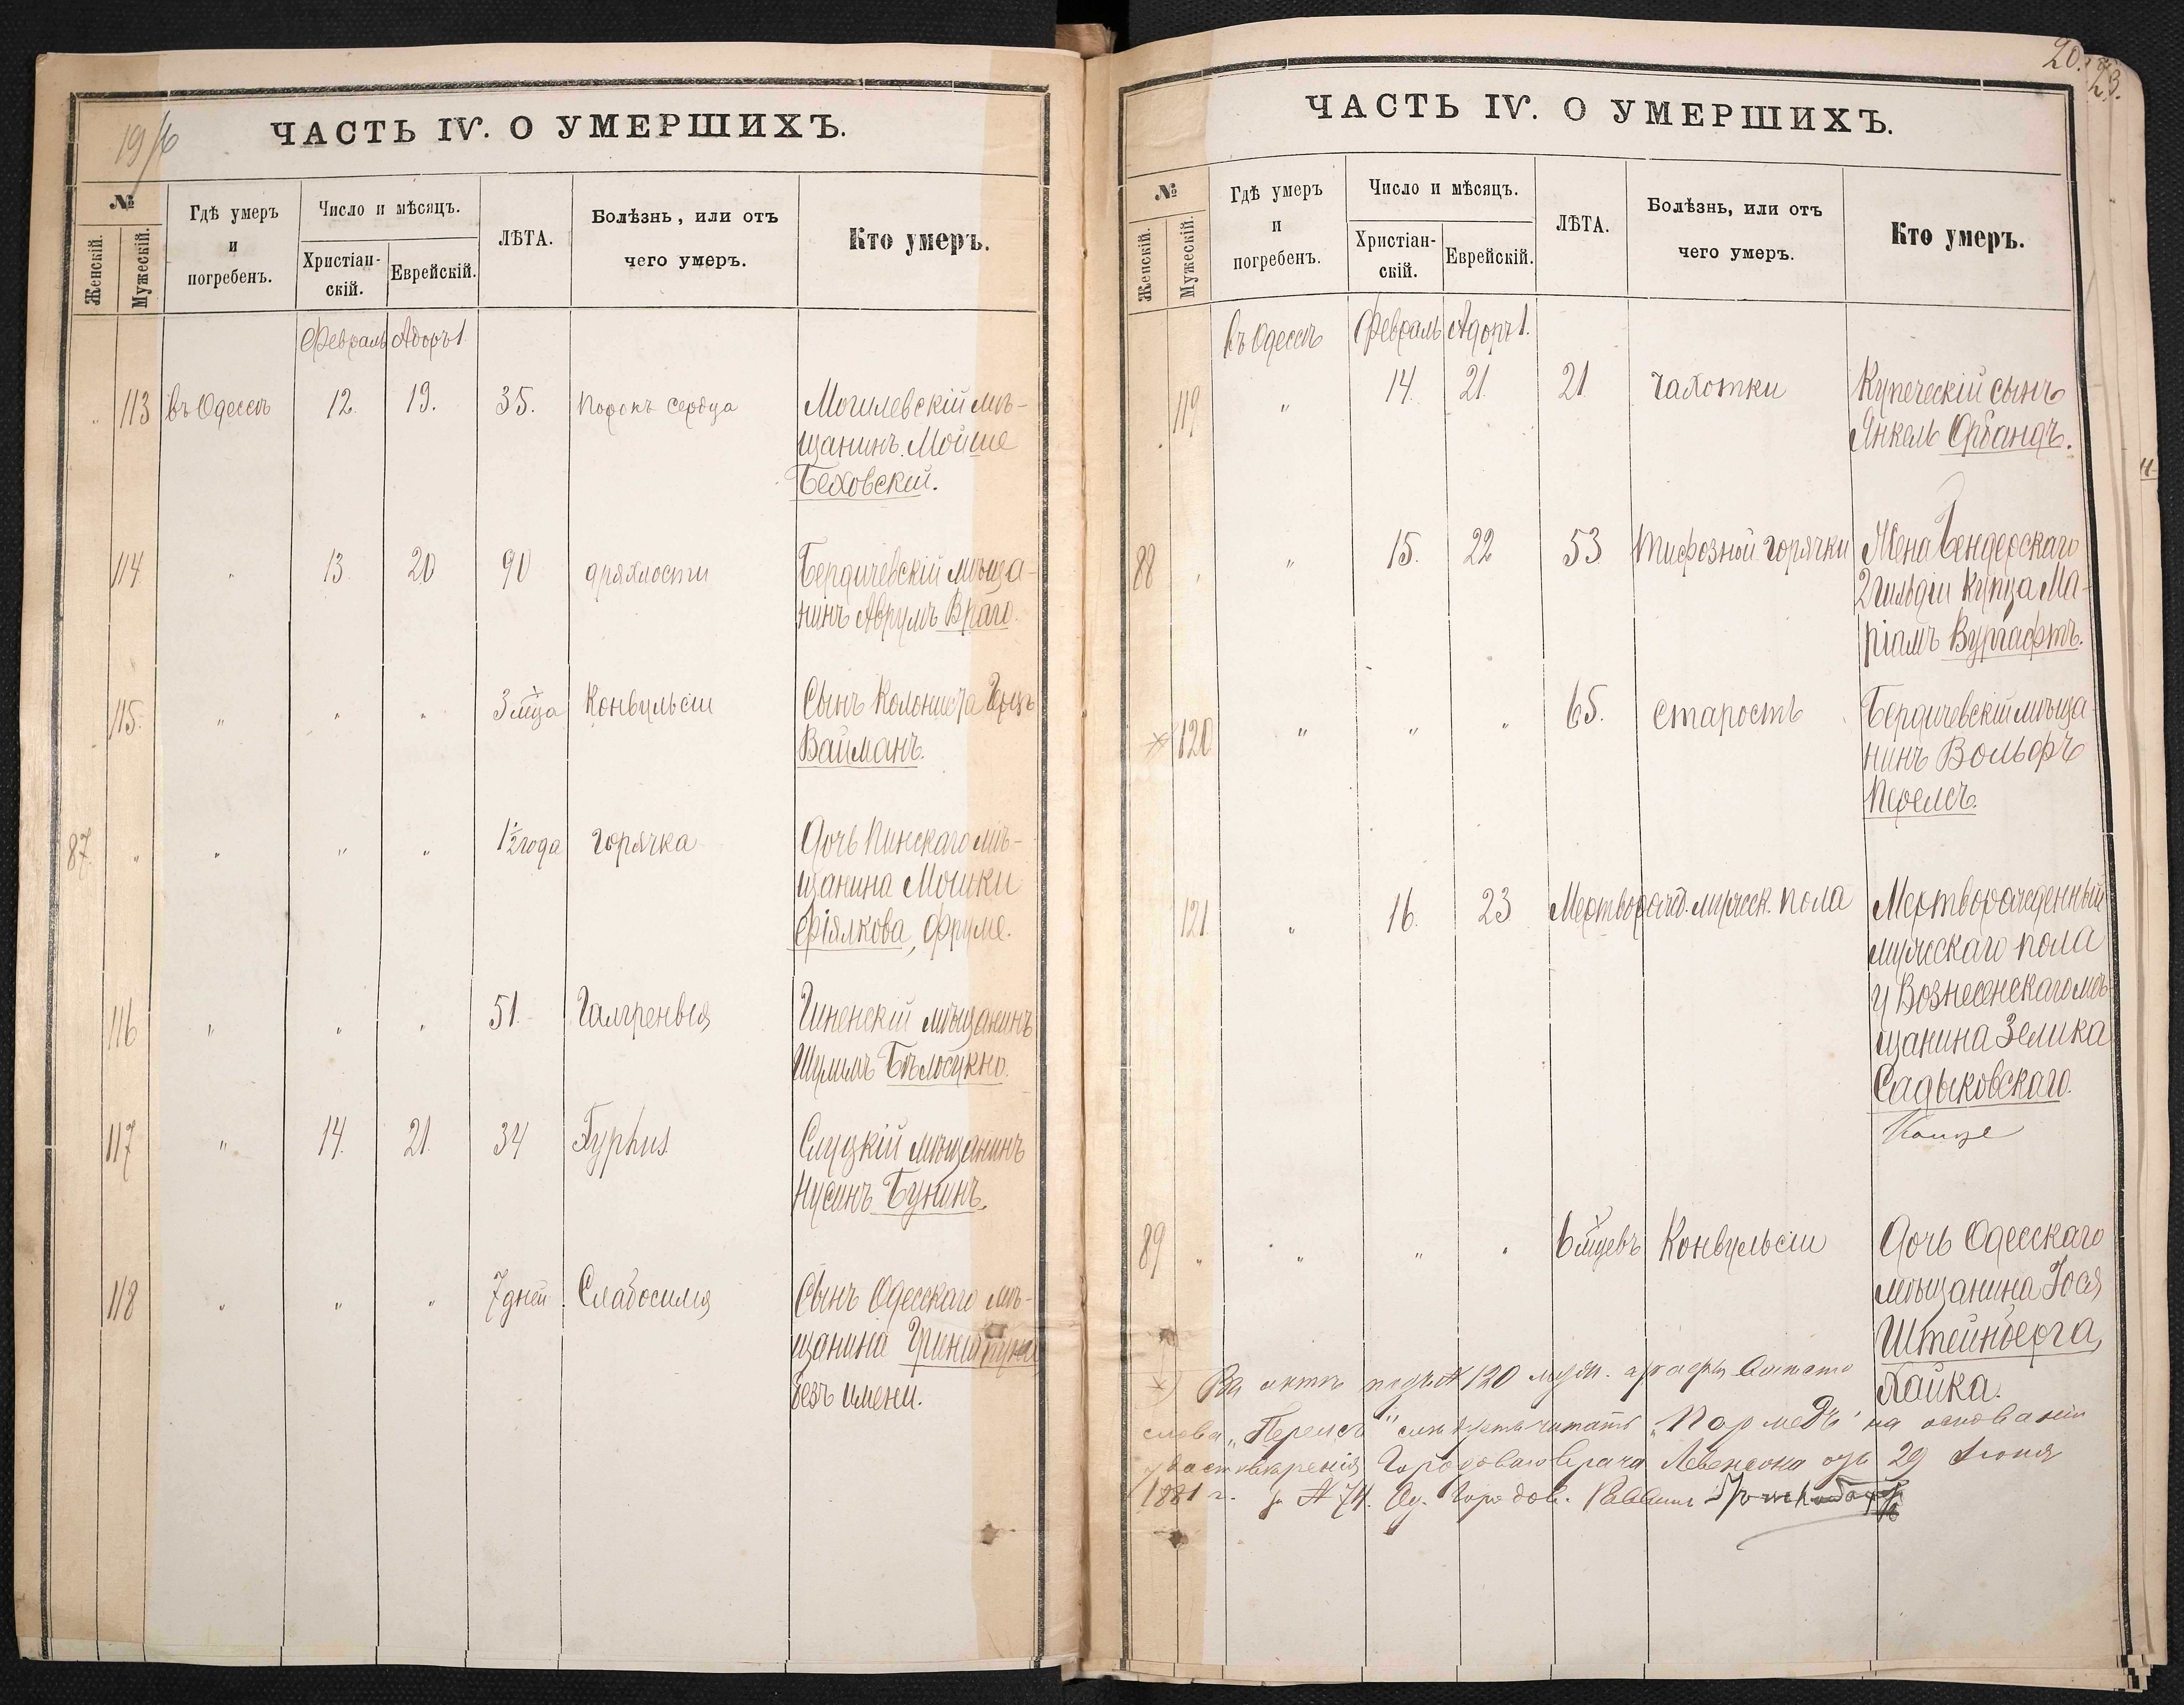 19/б
ЧАСТЬ IV. О УМЕРШИХЪ.
№
Женскій.
Мужескій.
Гдѣ умеръ
и
погребенъ.
Число и мѣсяцъ.
Христіан-
скій.
Еврейскій.
ЛѢТА.
Болѣзнь, или отъ
чего умеръ.
Кто умеръ.
Февраль Адоръ 1
113 въ Одессѣ 12. 19. 35. Порокъ сердца Могилевскій мѣ-
щанинъ Мойше
Беховскій.
114 " 13 20 90 дряхлости Бердичевскій мѣща-
нинъ Аврумъ Враго.
115. " " " 3 мѣца Конвульсіи Сынъ Колониста
Вайманъ.
87 " " " " 1½ года горячка Дочь Пинскаго мѣ-
щанина Мошки
Фіялкова, Фруме.
116 " " " 51. Гангренвія мѣщанинъ
Шулимъ
117 " 14. 21. 34 Typhus Слуцкій мѣщанинъ
Нусинъ Бунинъ.
118 " " " 7 дней Слабосилія Сынъ Одесскаго мѣ-
щанина
безъ имени.
20. 23.
ЧАСТЬ IV. О УМЕРШИХЪ.
№
Женскій.
Мужескій.
Гдѣ умеръ
и
погребенъ.
Число и мѣсяцъ.
Христіан-
скій.
Еврейскій.
ЛѢТА.
Болѣзнь, или отъ
чего умеръ.
Кто умеръ.
въ Одессѣ Февраль Адоръ 1.
119 " 14. 21. 21. Чахотки Купеческій сынъ
Янкель Орбандъ.
88 " " 15. 22 53 Тифозной горячки Жена Бендерскаго
2 гильдіи купца Ма-
ріамъ Вургафтъ.
120 " " " 65. Старость Бердичевскій мѣща-
нинъ Вольфъ
Перелсъ.
121 " 16. 23 Мертворожд. мужеск. пола Мертворожденный
мужескаго пола
у Вознесенскаго мѣ-
щанина Зелика
Садыковскаго.
89 " " " " 6 мѣцевъ Конвульсіи Дочь Одесскаго
мѣщанина Іося
Штейнберга,
Хайка.
Въ актѣ подъ № 120 муж. графы вмѣсто
слова „Перелсъ" слѣдуетъ читать „Пормедъ" на основаніи
удостовѣренія Городоваго Врача Левенсона отъ 29 Іюня
1881 г. за № 74. Од. Городов. Раввинъ